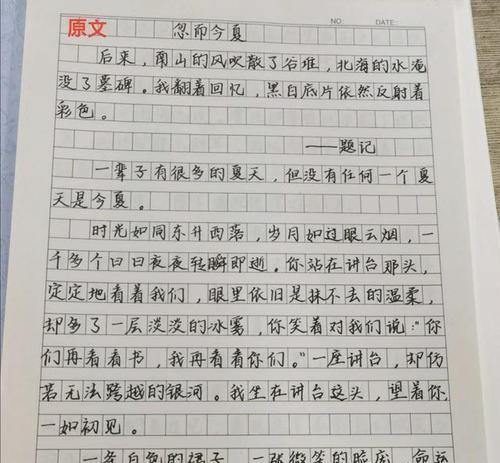 原文
NO:
DATE:
忽而今夏
后来，南山的风吹散了谷堆，北海的水淹
没了墓碑。我翻着回忆，黑白底片依然反射着
彩色。
——题记
一辈子有很多的夏天，但没有任何一个夏
天是今夏。
时光如同东升西落，岁月如过眼云烟，一
千多个日日夜夜转瞬即逝。你站在讲台那头，
定定地看着我们，眼里依旧是抹不去的温柔，
却多了一层淡淡的冰雾，你笑着对我们说："你
们再看看书，我再看看你们。"一座讲台，却仿
若无法跨越的银河。我坐在讲台这头，望着你
一如初见。
一条白色的裙子，一张微笑的脸庞，命运